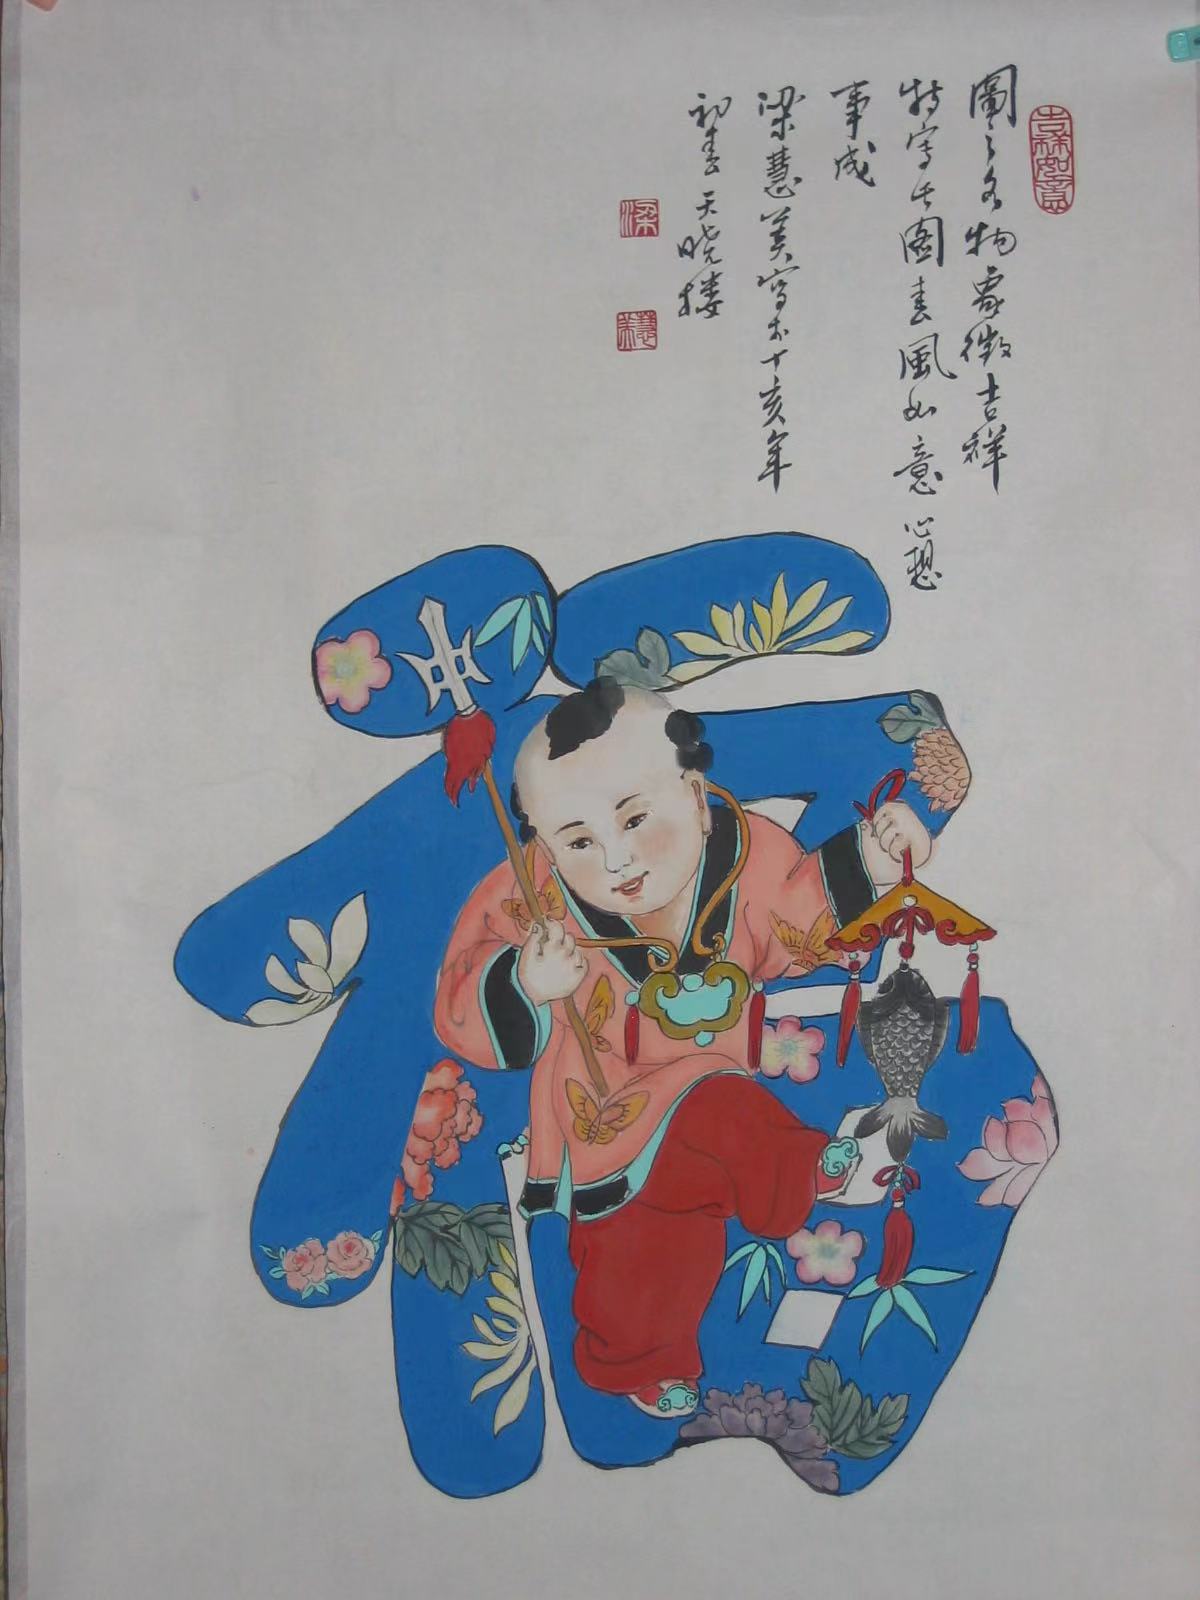 吉祥如意
圖之名物象徵吉祥
特寫此圖春風如意心想
事成
梁慧美寫於丁亥年
初春天曉樓
梁
慧美
福